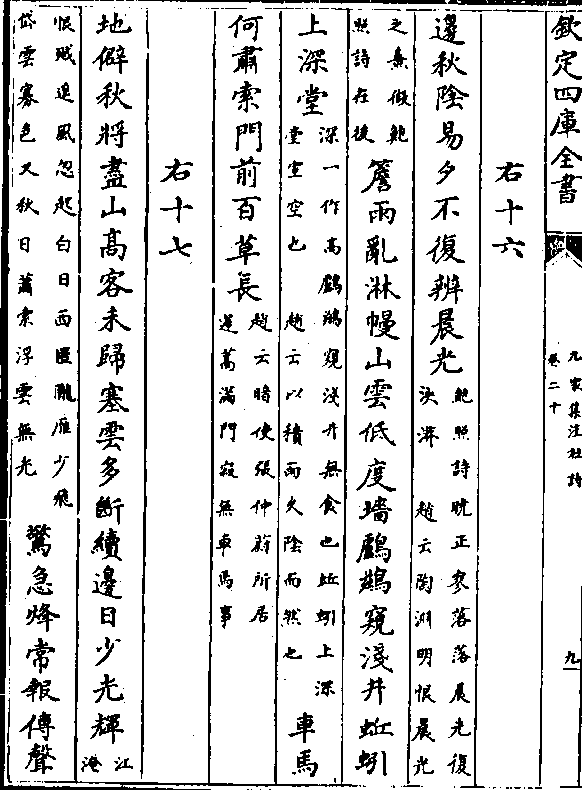 欽定四庫全書
九家集注杜詩
卷二十
九
右十六
邊秋陰易夕不復辨晨光
鮑照詩晄正參落落晨光復
泱漭 趙云陶淵明恨晨光
之熹微鮑
照詩在後
簷雨亂淋幔山雲低度墻鸕鷀窺淺井蚯蚓
上深堂
深一作高鸕鷀窺淺井無食也蚯蚓上深
堂室空也 趙云以積雨久陰而然也
車馬
何肅索門前百草長
趙云暗使張仲蔚所居
蓬蒿滿門寂無車馬事
右十七
地僻秋將盡山髙客未歸塞雲多斷續邊日少光輝
江
淹
恨賦遥風忽起白日西匿隴雁少飛
岱雲寡色又秋日蕭索浮雲無光
驚急烽常報傳聲